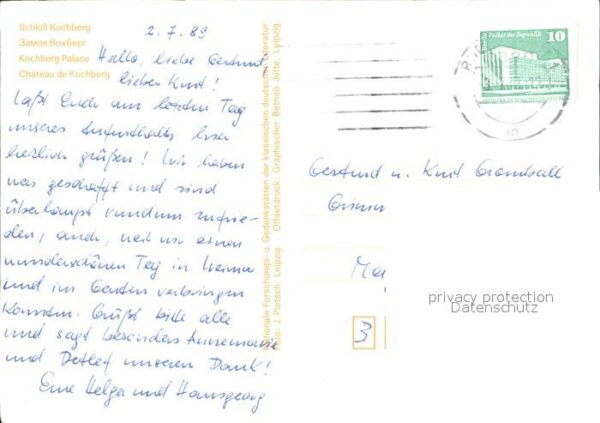 Schloß Kochberg
Замок Кохберг
Kochberg Palace
Château de Kochberg
2.7.89
Hallo, liebe Gertrud,
lieber Kurt!
Laßt Euch am letzten Tag
unseres Aufenthalts hier
herzlich grüßen! Wir haben
was geschafft und sind
überhaupt rundum zufrie-
den, auch, weil wir einen
wunderschönen Tag in Weimar
und im Garten verbringen
konnten. Grüßt bitte alle
und sagt besonders Annemarie
und Detlef unseren Dank!
Eure Helga und Hansgeorg
Nationale Forschungs- u. Gedenkstätten der klassischen deutschen Literatur
Foto: J. Pietsch, Leipzig · Offsetdruck Graphischer Betrieb Jütte, Leipzig
Berlin Palast der Republik
10
Gertrud u. Kurt
3
privacy protection
Datenschutz